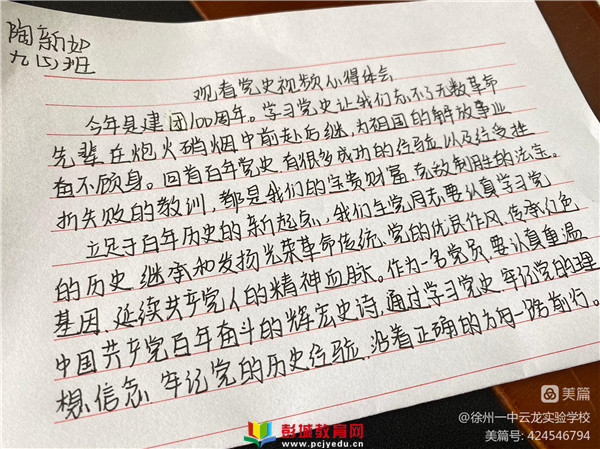 陶新如
九(5)班
观看党史视频心得体会
今年是建团100周年。学习党史让我们忘不了无数革命
先辈在炮火硝烟中前赴后继,为祖国的解放事业
奋不顾身。回首百年党史,有很多成功的经验,以及经受挫
折失败的教训,都是我们的宝贵财富,克敌制胜的法宝。
立足于百年历史的新起点,我们全党同志要认真学习党
的历史,继承和发扬光荣革命传统、党的优良作风,传承红色
基因,延续共产党人的精神血脉。作为一名党员,要认真重温
中国共产党百年奋斗的辉宏史诗,通过学习党史,牢记党的理
想信念,牢记党的历史经验,沿着正确的方向一路前行。
美篇
@徐州一中云龙实验学校
美篇号: 424546794
彭城教育网
www.pcjyedu.cn